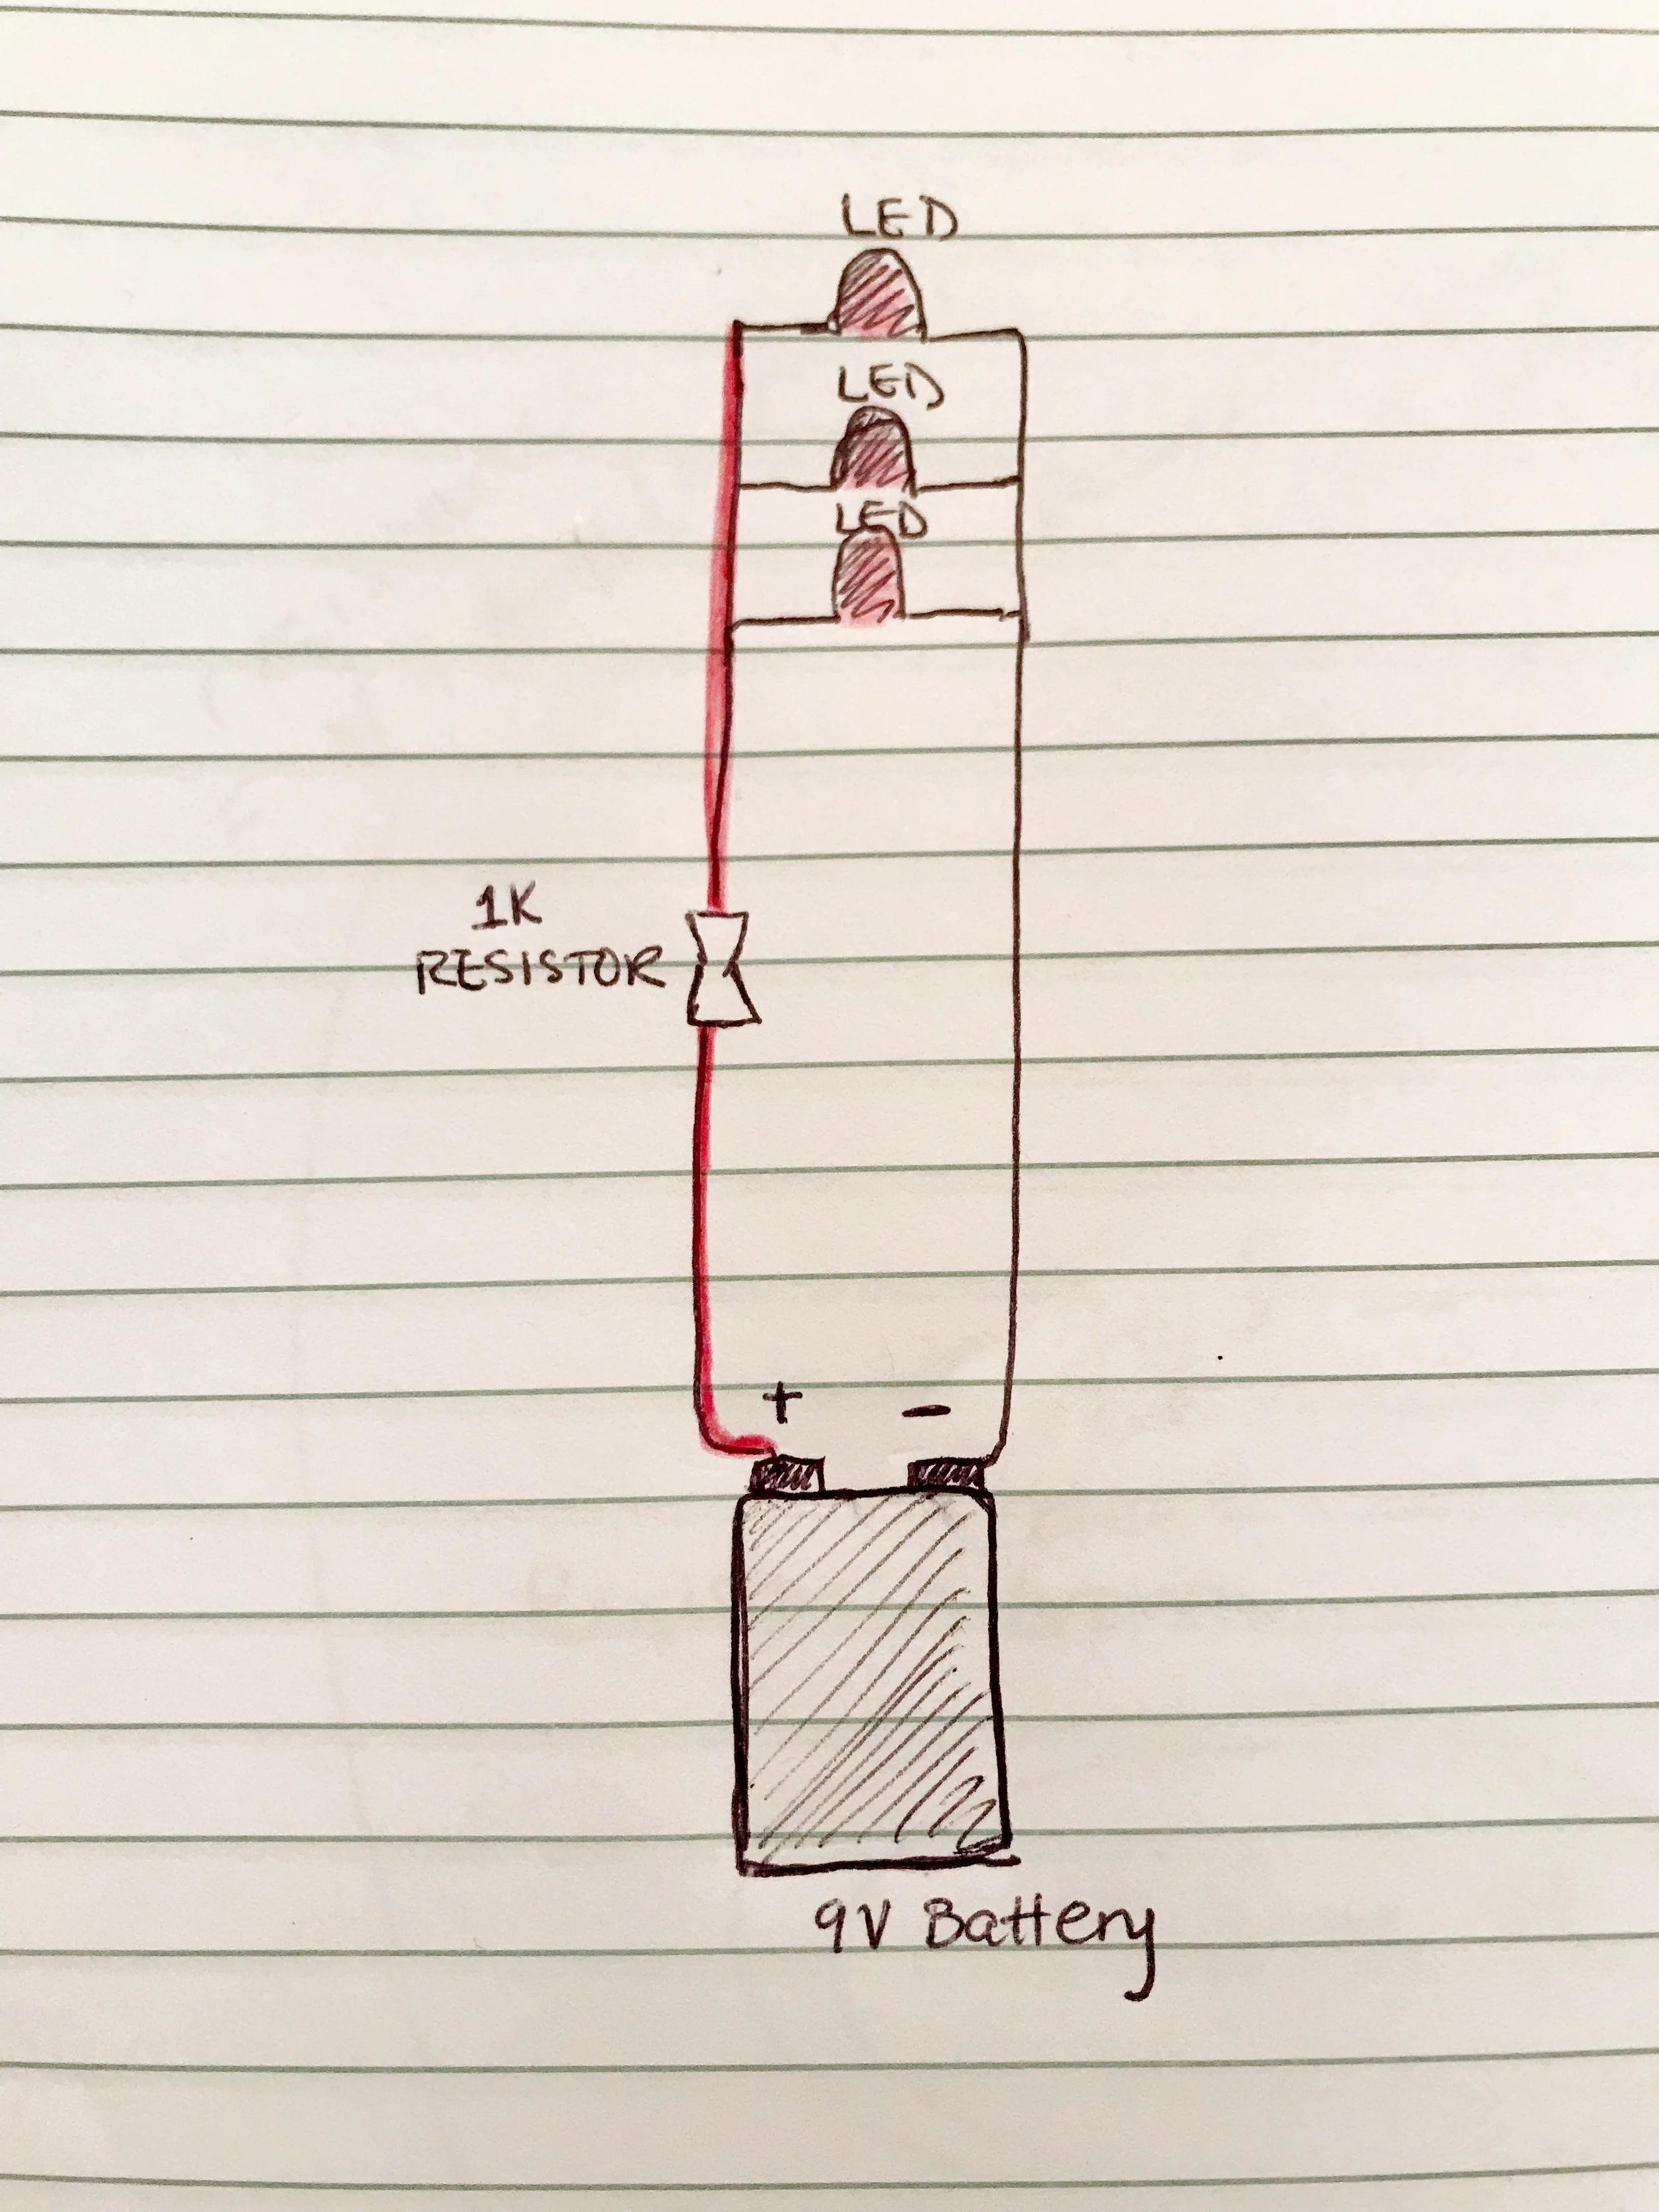 LED
LED
LED
1K
RESISTOR
+ -
9V Battery